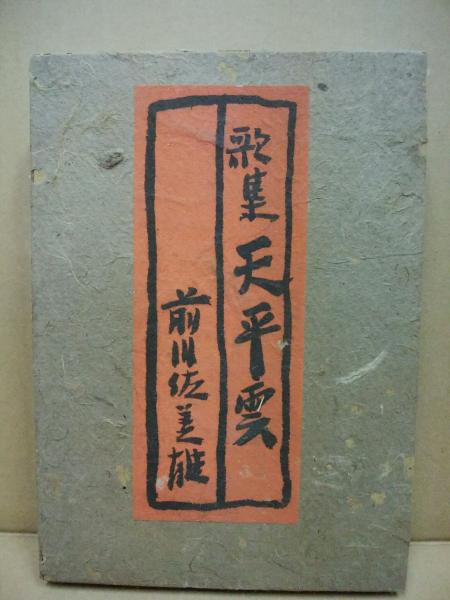 歌集 天平雲
前川佐美雄